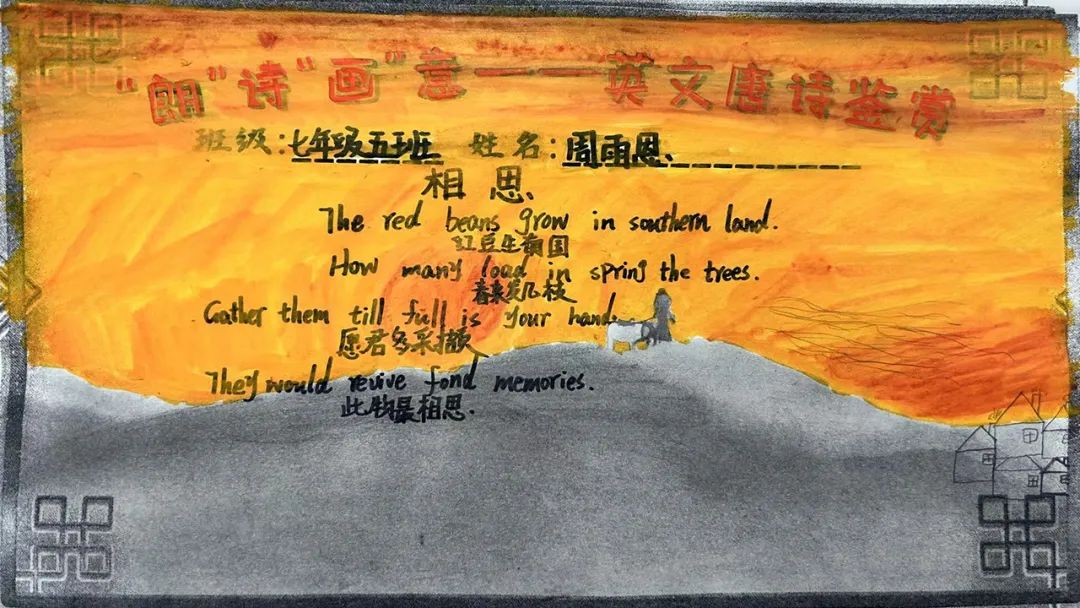 “朗”诗“画”意——英文唐诗鉴赏
班级:七年级五班 姓名:周雨恩、
相思、
The red beans grow in southern land.
红豆生南国
How many load in spring the trees.
春来发几枝
Gather them till full is your hand.
愿君多采撷、
They would revive fond memories.
此物最相思.